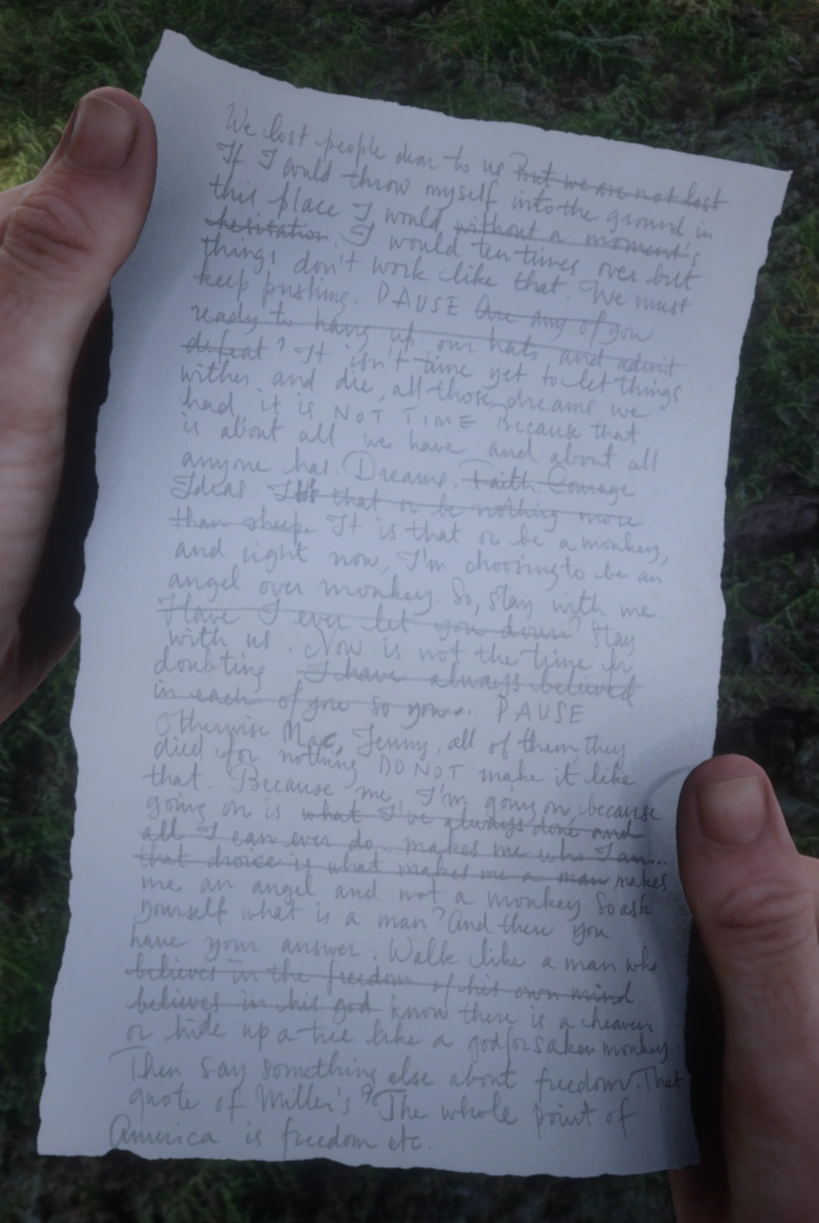 We lost people dear to us But we are not lost
If I could throw myself into the ground in
this place I would, without a moment's
hesitation. I would ten times over but
things don't work like that. We must
keep pushing. PAUSE Are any of you
ready to hang up our hats and admit
defeat? It isn't time yet to let things
wither and die, all those dreams we
had, it is NOT TIME Because that
is about all we have and about all
anyone has. Dreams. Faith. Courage
Ideas. It's that or be nothing more
than sheep. It is that or be a monkey,
and right now, I'm choosing to be an
angel over monkey. So, stay with me
Have I ever let you down? Stay
with us. Now is not the time for
doubting. I have always believed
in each of you so you... PAUSE
Otherwise Mac, Jenny, all of them, they
died for nothing. DO NOT make it like
that. Because me, I'm going on, because
going on is what I've always done and
all I can ever do... makes me who I am...
that choice is what makes me a man makes
me an angel and not a monkey So ask
yourself what is a man? And there you
have your answer. Walk like a man who
believes in the freedom of his own mind
believes in his god know there is a heaven
or hide up a tree like a godforsaken monkey.
Then say something else about freedom. That
quote of Miller's? "The whole point of
America is freedom etc.